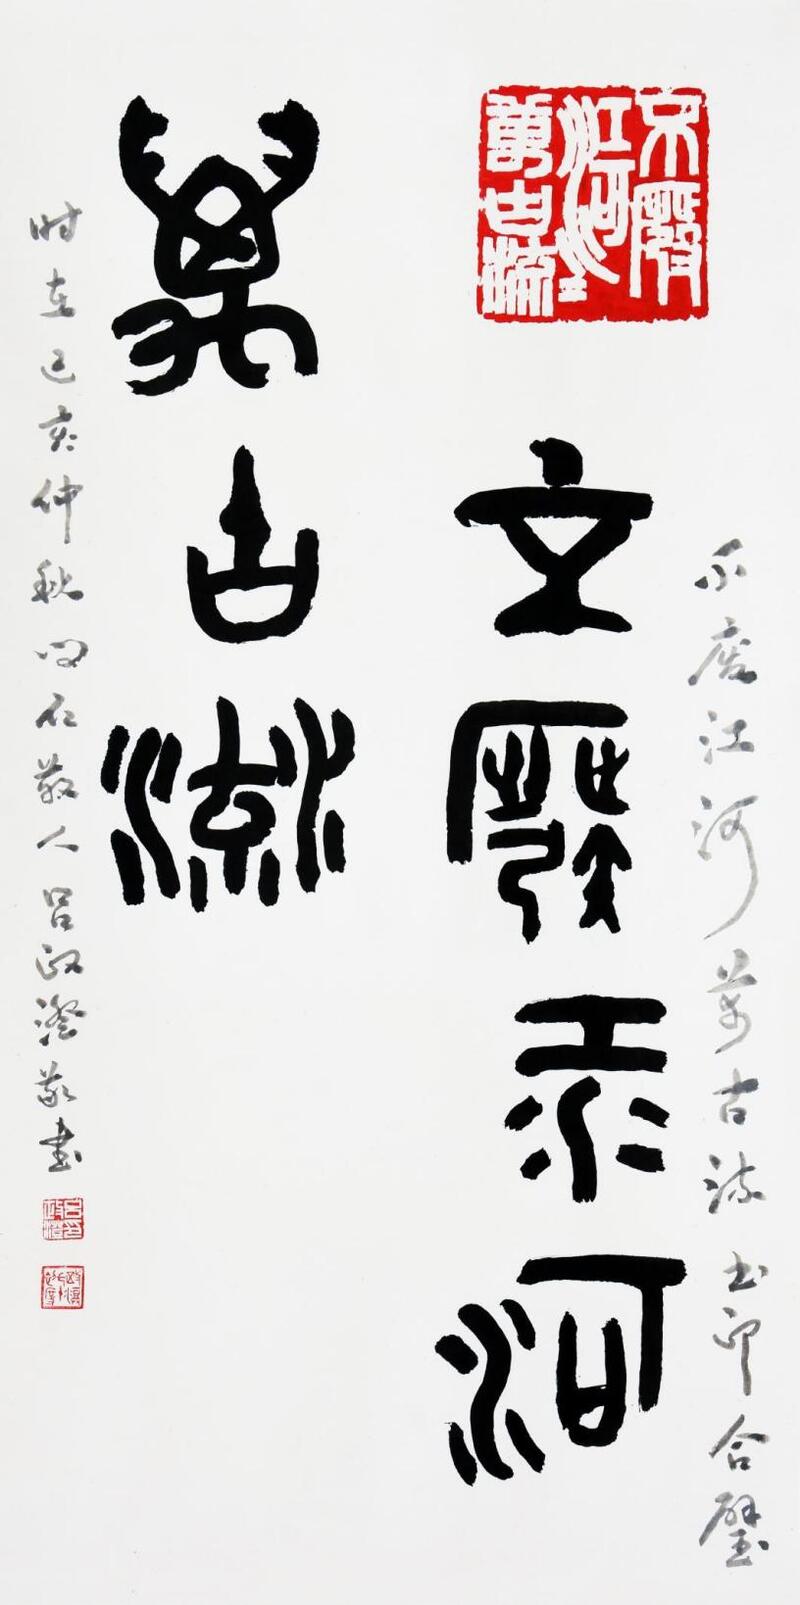 不廢江河萬古流书印合璧
不廢
江河
萬古流
不廢江河
萬古流
时在己亥仲秋叩石散人吕政澄敬书